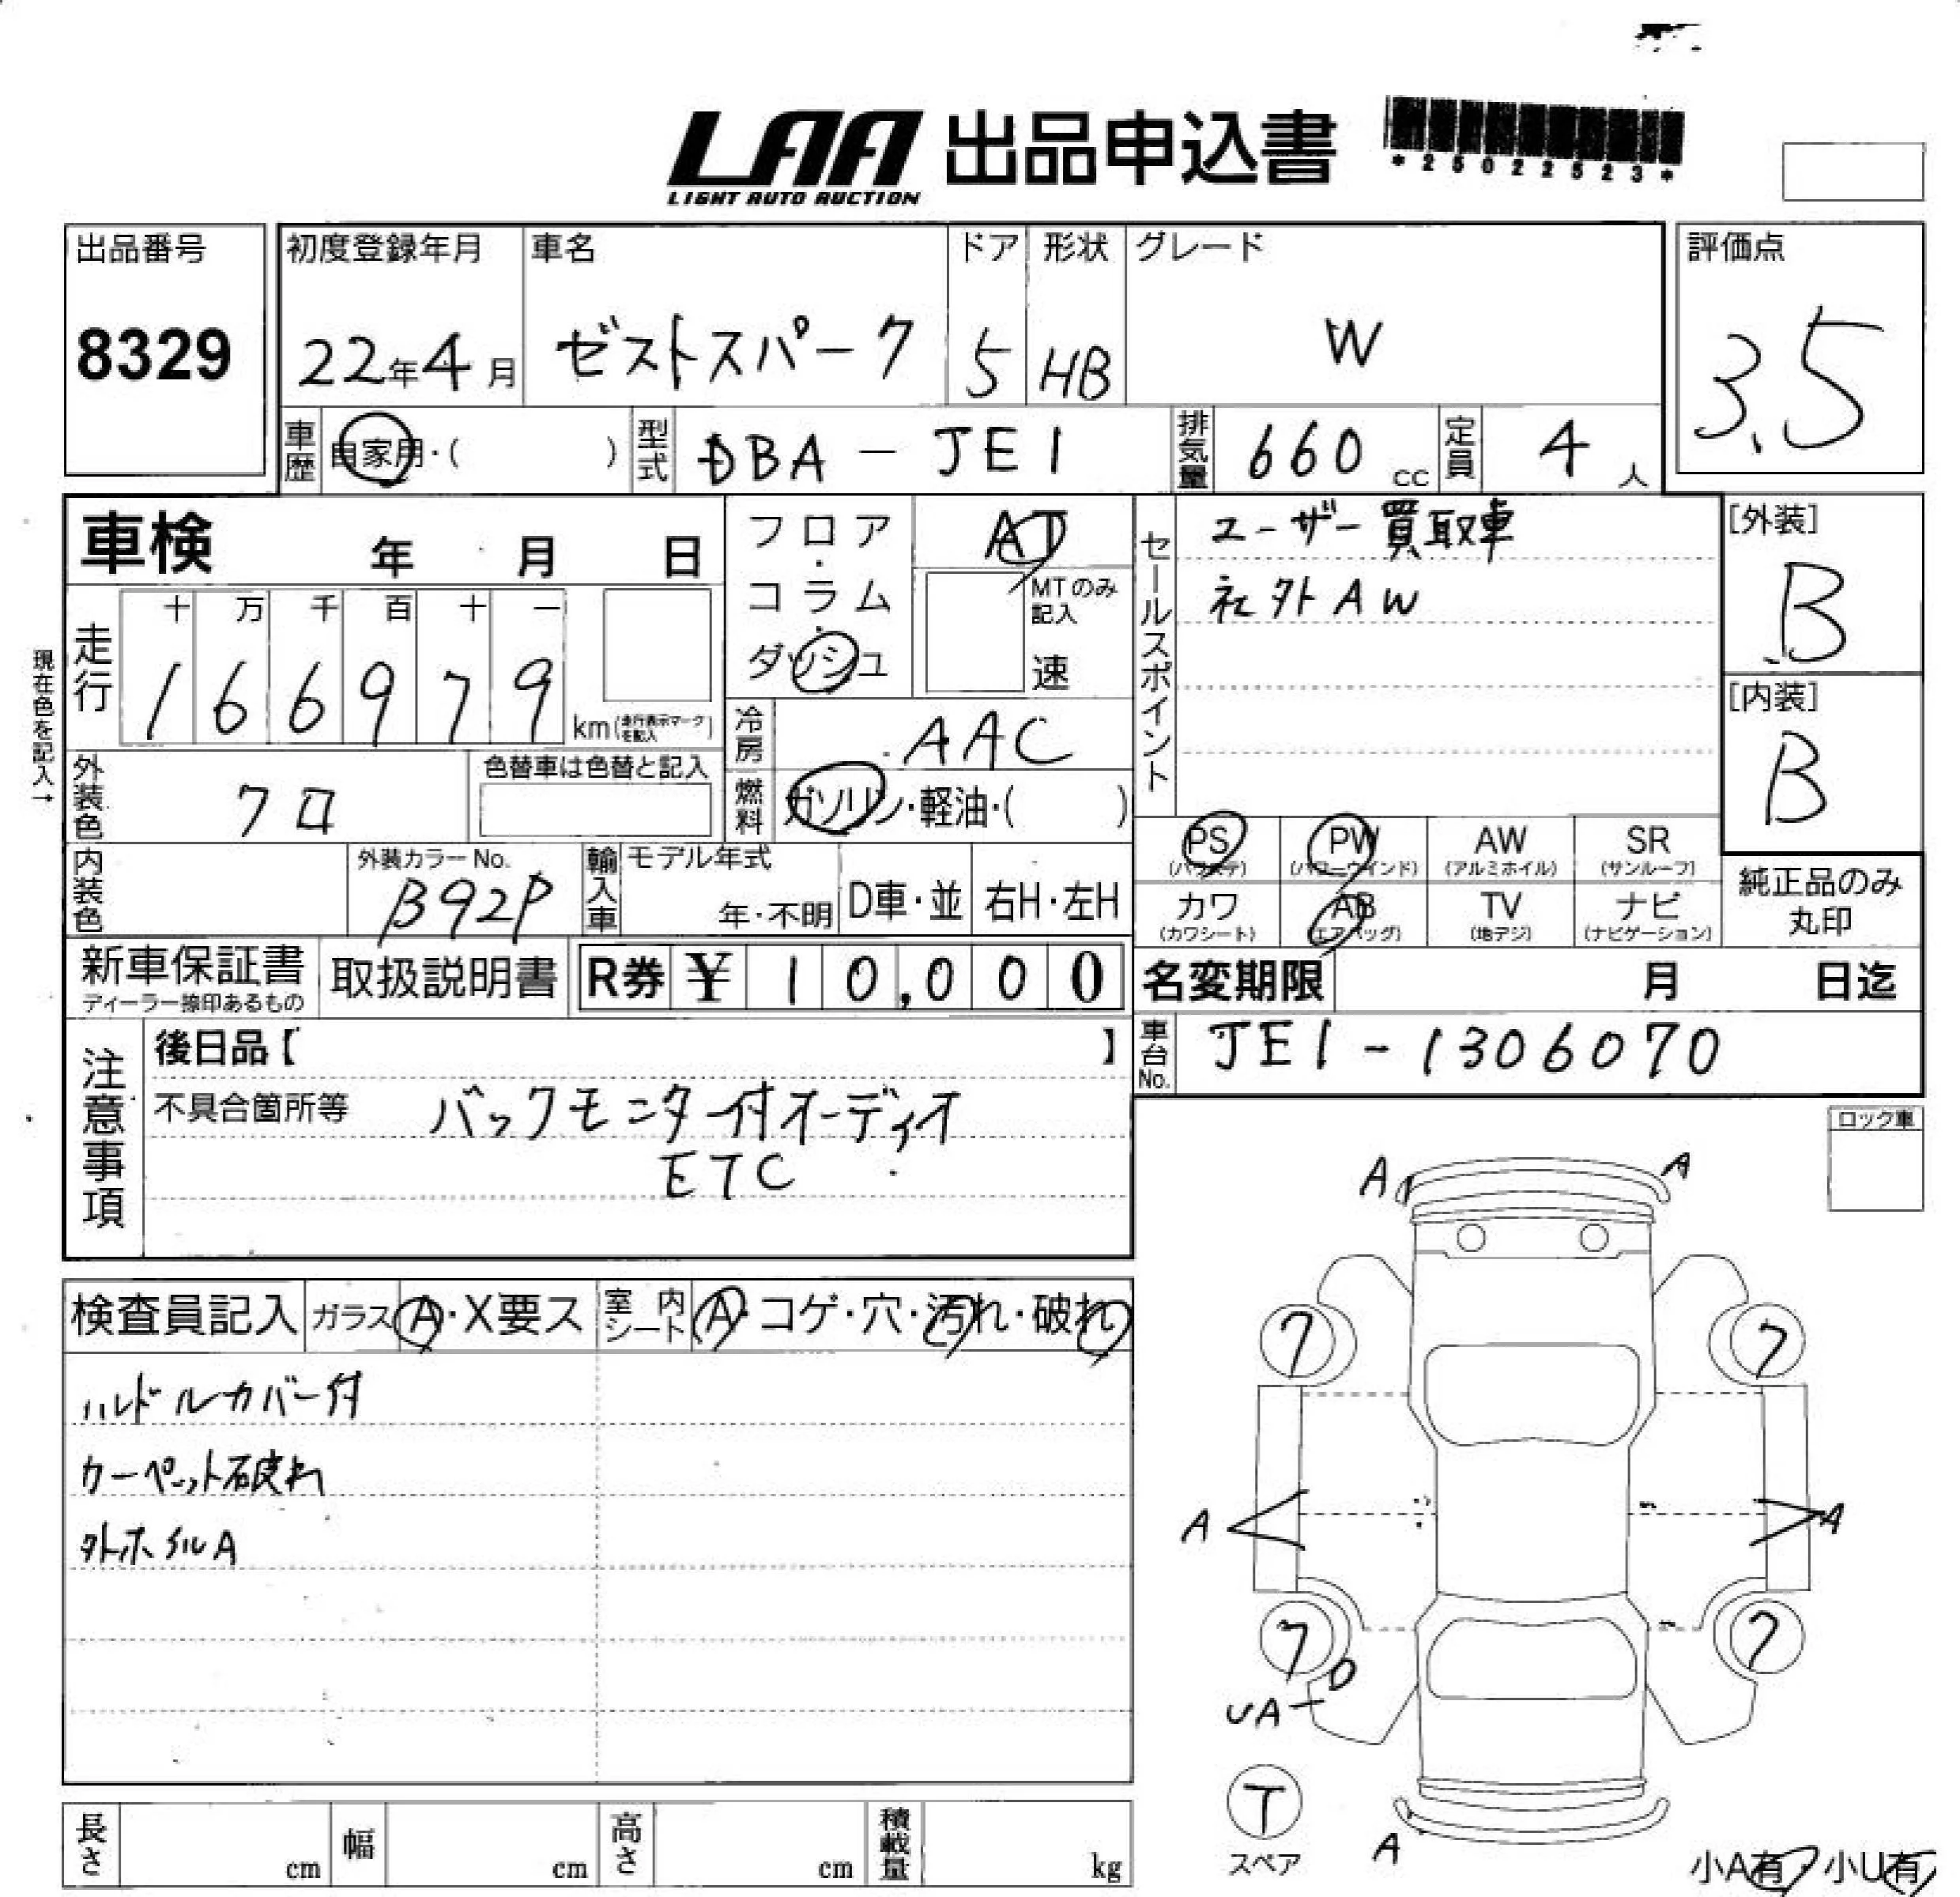 LAA 出品申込書
LIGHT AUTO AUCTION
*25022523*
出品番号
8329
初度登録年月
22年4月
車名
ゼストスパーク
ドア
5
形状
HB
グレード
W
評価点
3.5
車歴
自家用・( )
型式
DBA-JE1
排気量
660 cc
定員
4 人
車検 年 月 日
フロア・コラム・ダッシュ
AT
MTのみ記入
速
セールスポイント
ユーザー買取車
社外AW
[外装]
B
[内装]
B
現在色を記入→
走行
十 万 千 百 十 一
1 6 6 9 7 9
km(走行表示マークを記入)
冷房
AAC
燃料
ガソリン・軽油・( )
外装色
クロ
色替車は色替と記入
内装色
外装カラーNo.
B92P
輸入車
モデル年式
年・不明
D車・並
右H・左H
PS
(パワステ)
PW
(パワーウインド)
AW
(アルミホイル)
SR
(サンルーフ)
カワ
(カワシート)
AB
(エアバッグ)
TV
(地デジ)
ナビ
(ナビゲーション)
純正品のみ
丸印
新車保証書
ディーラー捺印あるもの
取扱説明書
R券 ¥ 10,000
名変期限 月 日迄
車台No.
JE1-1306070
注意事項
後日品【 】
不具合箇所等
バックモニター付オーディオ
ETC
ロック車
検査員記入
ガラス A・X要ス
室内シート A・コゲ・穴・汚れ・破れ
ハンドルカバー付
カーペット破れ
外ホイルA
A A
7 7
A A
7 7
UA
T
スペア
A
小A有 小U有
長さ cm
幅 cm
高さ cm
積載量 kg